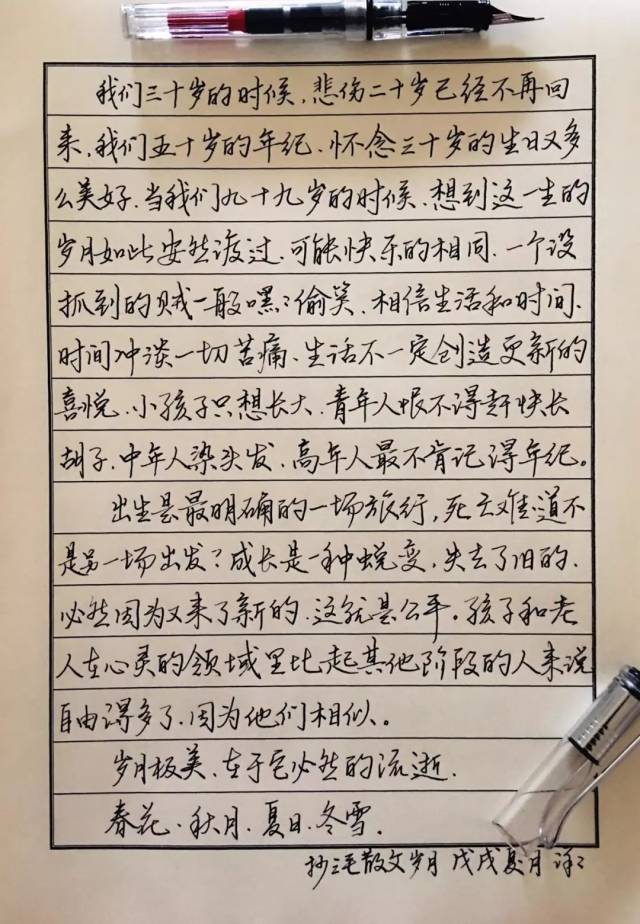 我们三十岁的时候,悲伤二十岁已经不再回
来,我们五十岁的年纪、怀念三十岁的生日又多
么美好,当我们九十九岁的时候、想到这一生的
岁月如此安然渡过、可能快乐的相同、一个没
抓到的贼一般嘿嘿偷笑、相信生活和时间、
时间冲淡一切苦痛、生活不一定创造更新的
喜悦、小孩子只想长大、青年人恨不得赶快长
胡子、中年人染头发、高年人最不肯记得年纪。
出生是最明确的一场旅行,死亡难道不
是另一场出发?成长是一种蜕变、失去了旧的、
必然因为又来了新的、这就是公平。孩子和老
人在心灵的领域里比起其他阶段的人来说
自由得多了、因为他们相似、。
岁月极美、在于它必然的流逝、
春花、秋月、夏日、冬雪、
抄三毛散文岁月 戊戌夏月